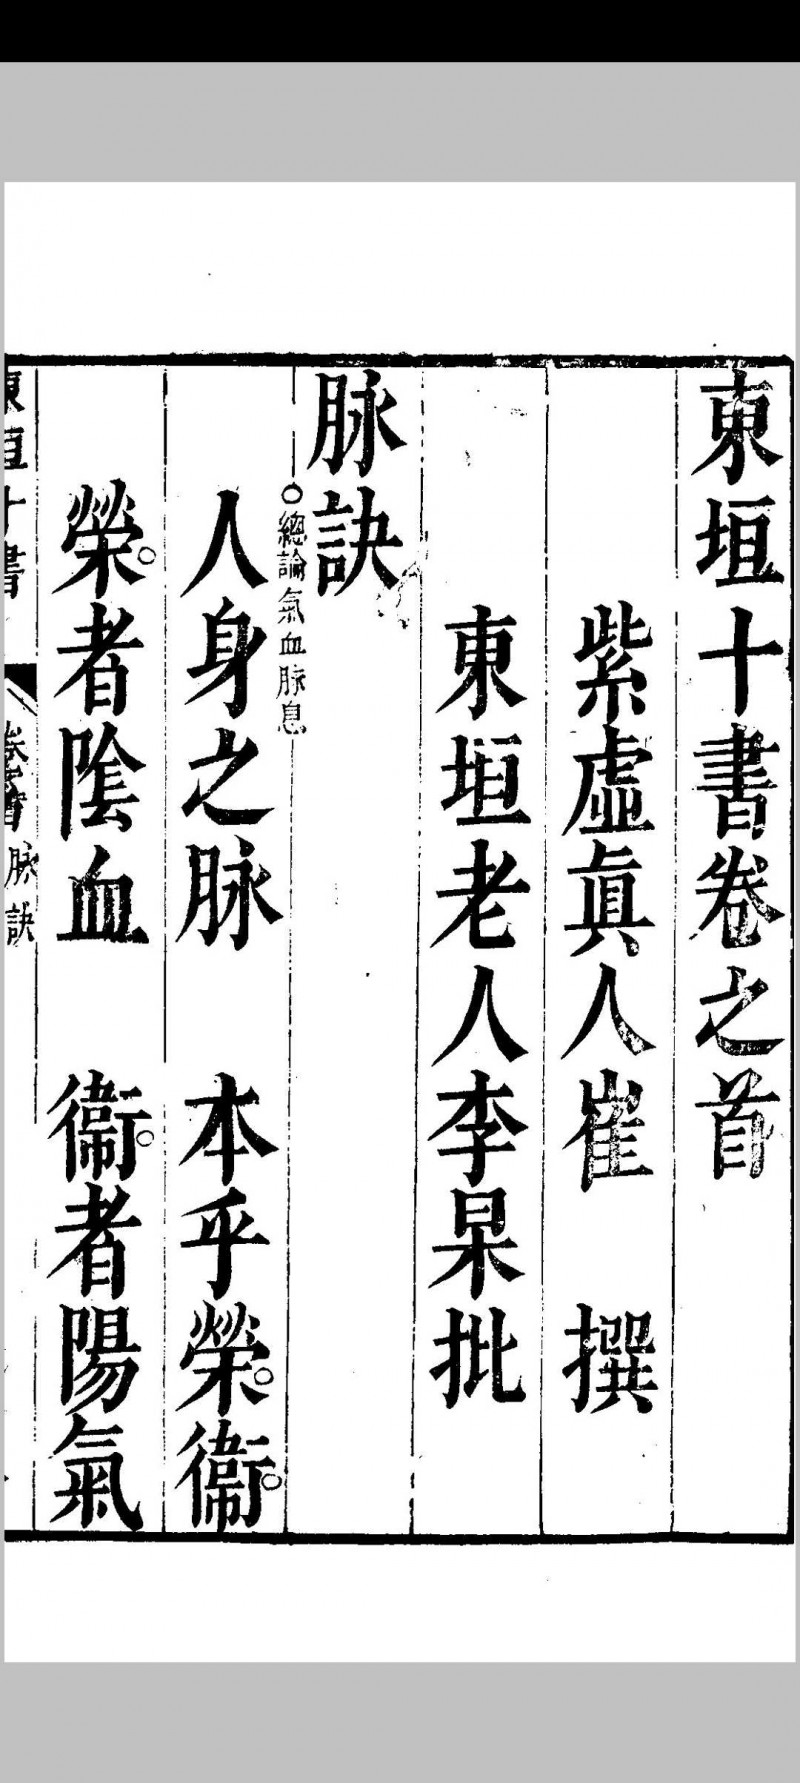 東垣十書卷之首
紫虛眞人崔　撰
東垣老人李杲批
脉訣
○總論氣血脉息
人身之脉　本乎榮衞
榮者陰血　衞者陽氣
東垣十書　脉訣